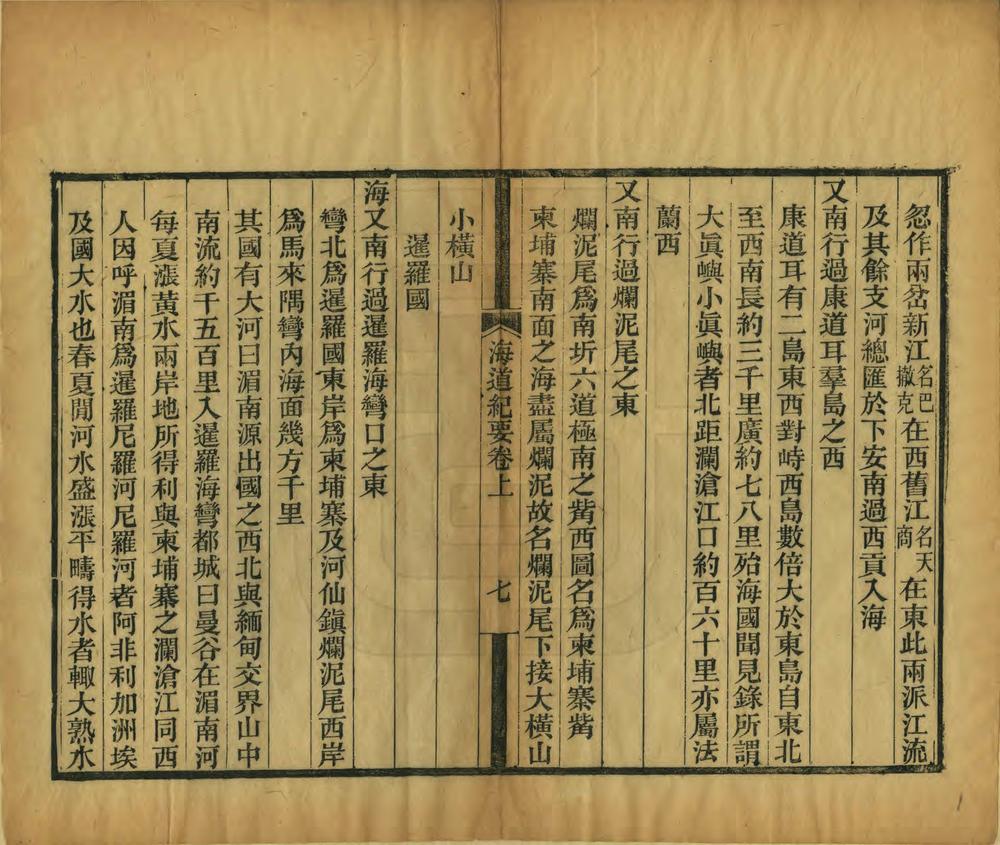 忽作兩岔新江名巴撒克在西舊江名天商在東此兩派江流
及其餘支河總匯於下安南過西貢入海
又南行過康道耳羣島之西
康道耳有二島東西對峙西島數倍大於東島自東北
至西南長約三千里廣約七八里殆海國聞見錄所謂
大眞嶼小眞嶼者北距瀾滄江口約百六十里亦屬法
蘭西
又南行過爛泥尾之東
爛泥尾爲南圻六道極南之觜西圖名爲柬埔寨觜
柬埔寨南面之海盡屬爛泥故名爛泥尾下接大橫山
小橫山
暹羅國
海又南行過暹羅海彎口之東
彎北爲暹羅國東岸爲柬埔寨及河仙鎭爛泥尾西岸
爲馬來隅彎內海面幾方千里
其國有大河曰湄南源出國之西北與緬甸交界山中
南流約千五百里入暹羅海彎都城曰曼谷在湄南河
每夏漲黃水兩岸地所得利與柬埔寨之瀾滄江同西
人因呼湄南爲暹羅尼羅河尼羅河者阿非利加洲埃
及國大水也春夏閒河水盛漲平疇得水者輙大熟水
海道紀要卷上
七